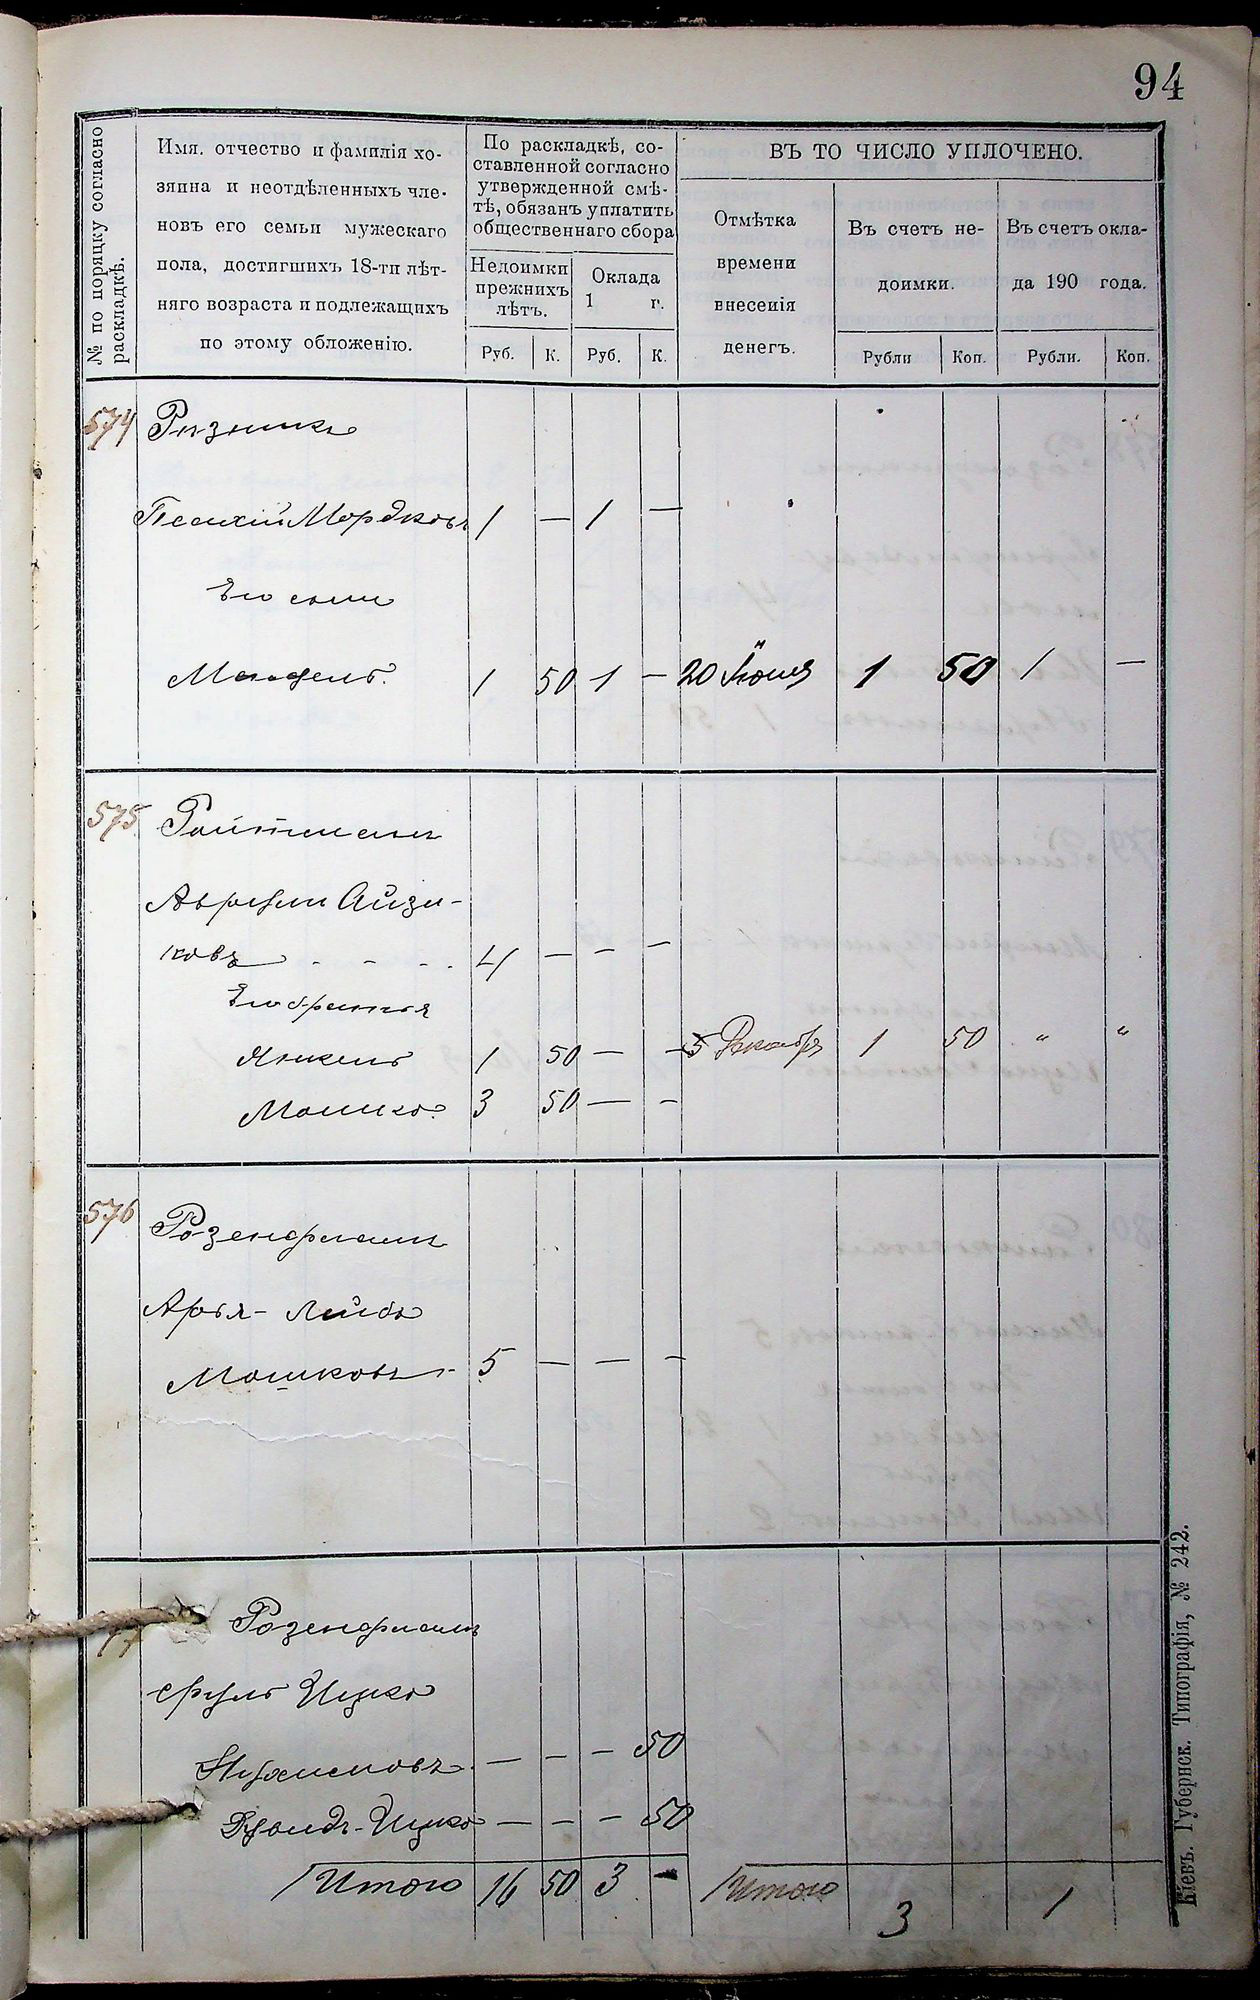 94
№ по порядку согласно раскладкѣ.
Имя, отчество и фамилія хо-
зяина и неотдѣленныхъ чле-
новъ его семьи мужескаго
пола, достигшихъ 18-ти лѣт-
няго возраста и подлежащихъ
по этому обложенію.
По раскладкѣ, со-
ставленной согласно
утвержденной смѣ-
тѣ, обязанъ уплатить
общественнаго сбора
Недоимки
прежнихъ
лѣтъ.
Оклада
1 г.
Руб. К. Руб. К.
ВЪ ТО ЧИСЛО УПЛОЧЕНО.
Отмѣтка
времени
внесенія
денегъ.
Въ счетъ не-
доимки.
Рубли Коп.
Въ счетъ окла-
да 190 года.
Рубли. Коп.
574 Ризникъ
Песахій Мордковъ 1 — 1 —
Его сынъ
Мендель. 1 50 1 — 20 Іюня 1 50 1 —
575 Ройтманъ
Аврумъ Айзи-
ковъ - - - . 4 — — —
Его братья
Янкель 1 50 — — 5 Декабря 1 50 " "
Мошко. 3 50 — —
576 Розенфманъ
Арья-Лейба
Мошковъ - 5 — — —
Розенфманъ
Сруль Ицко
Нухимовъ — — — 50
Дувидъ-Ицко — — — 50
Итого 16 50 3 - Итого 3 1
Кіевъ. Губернск. Типографія, № 242.